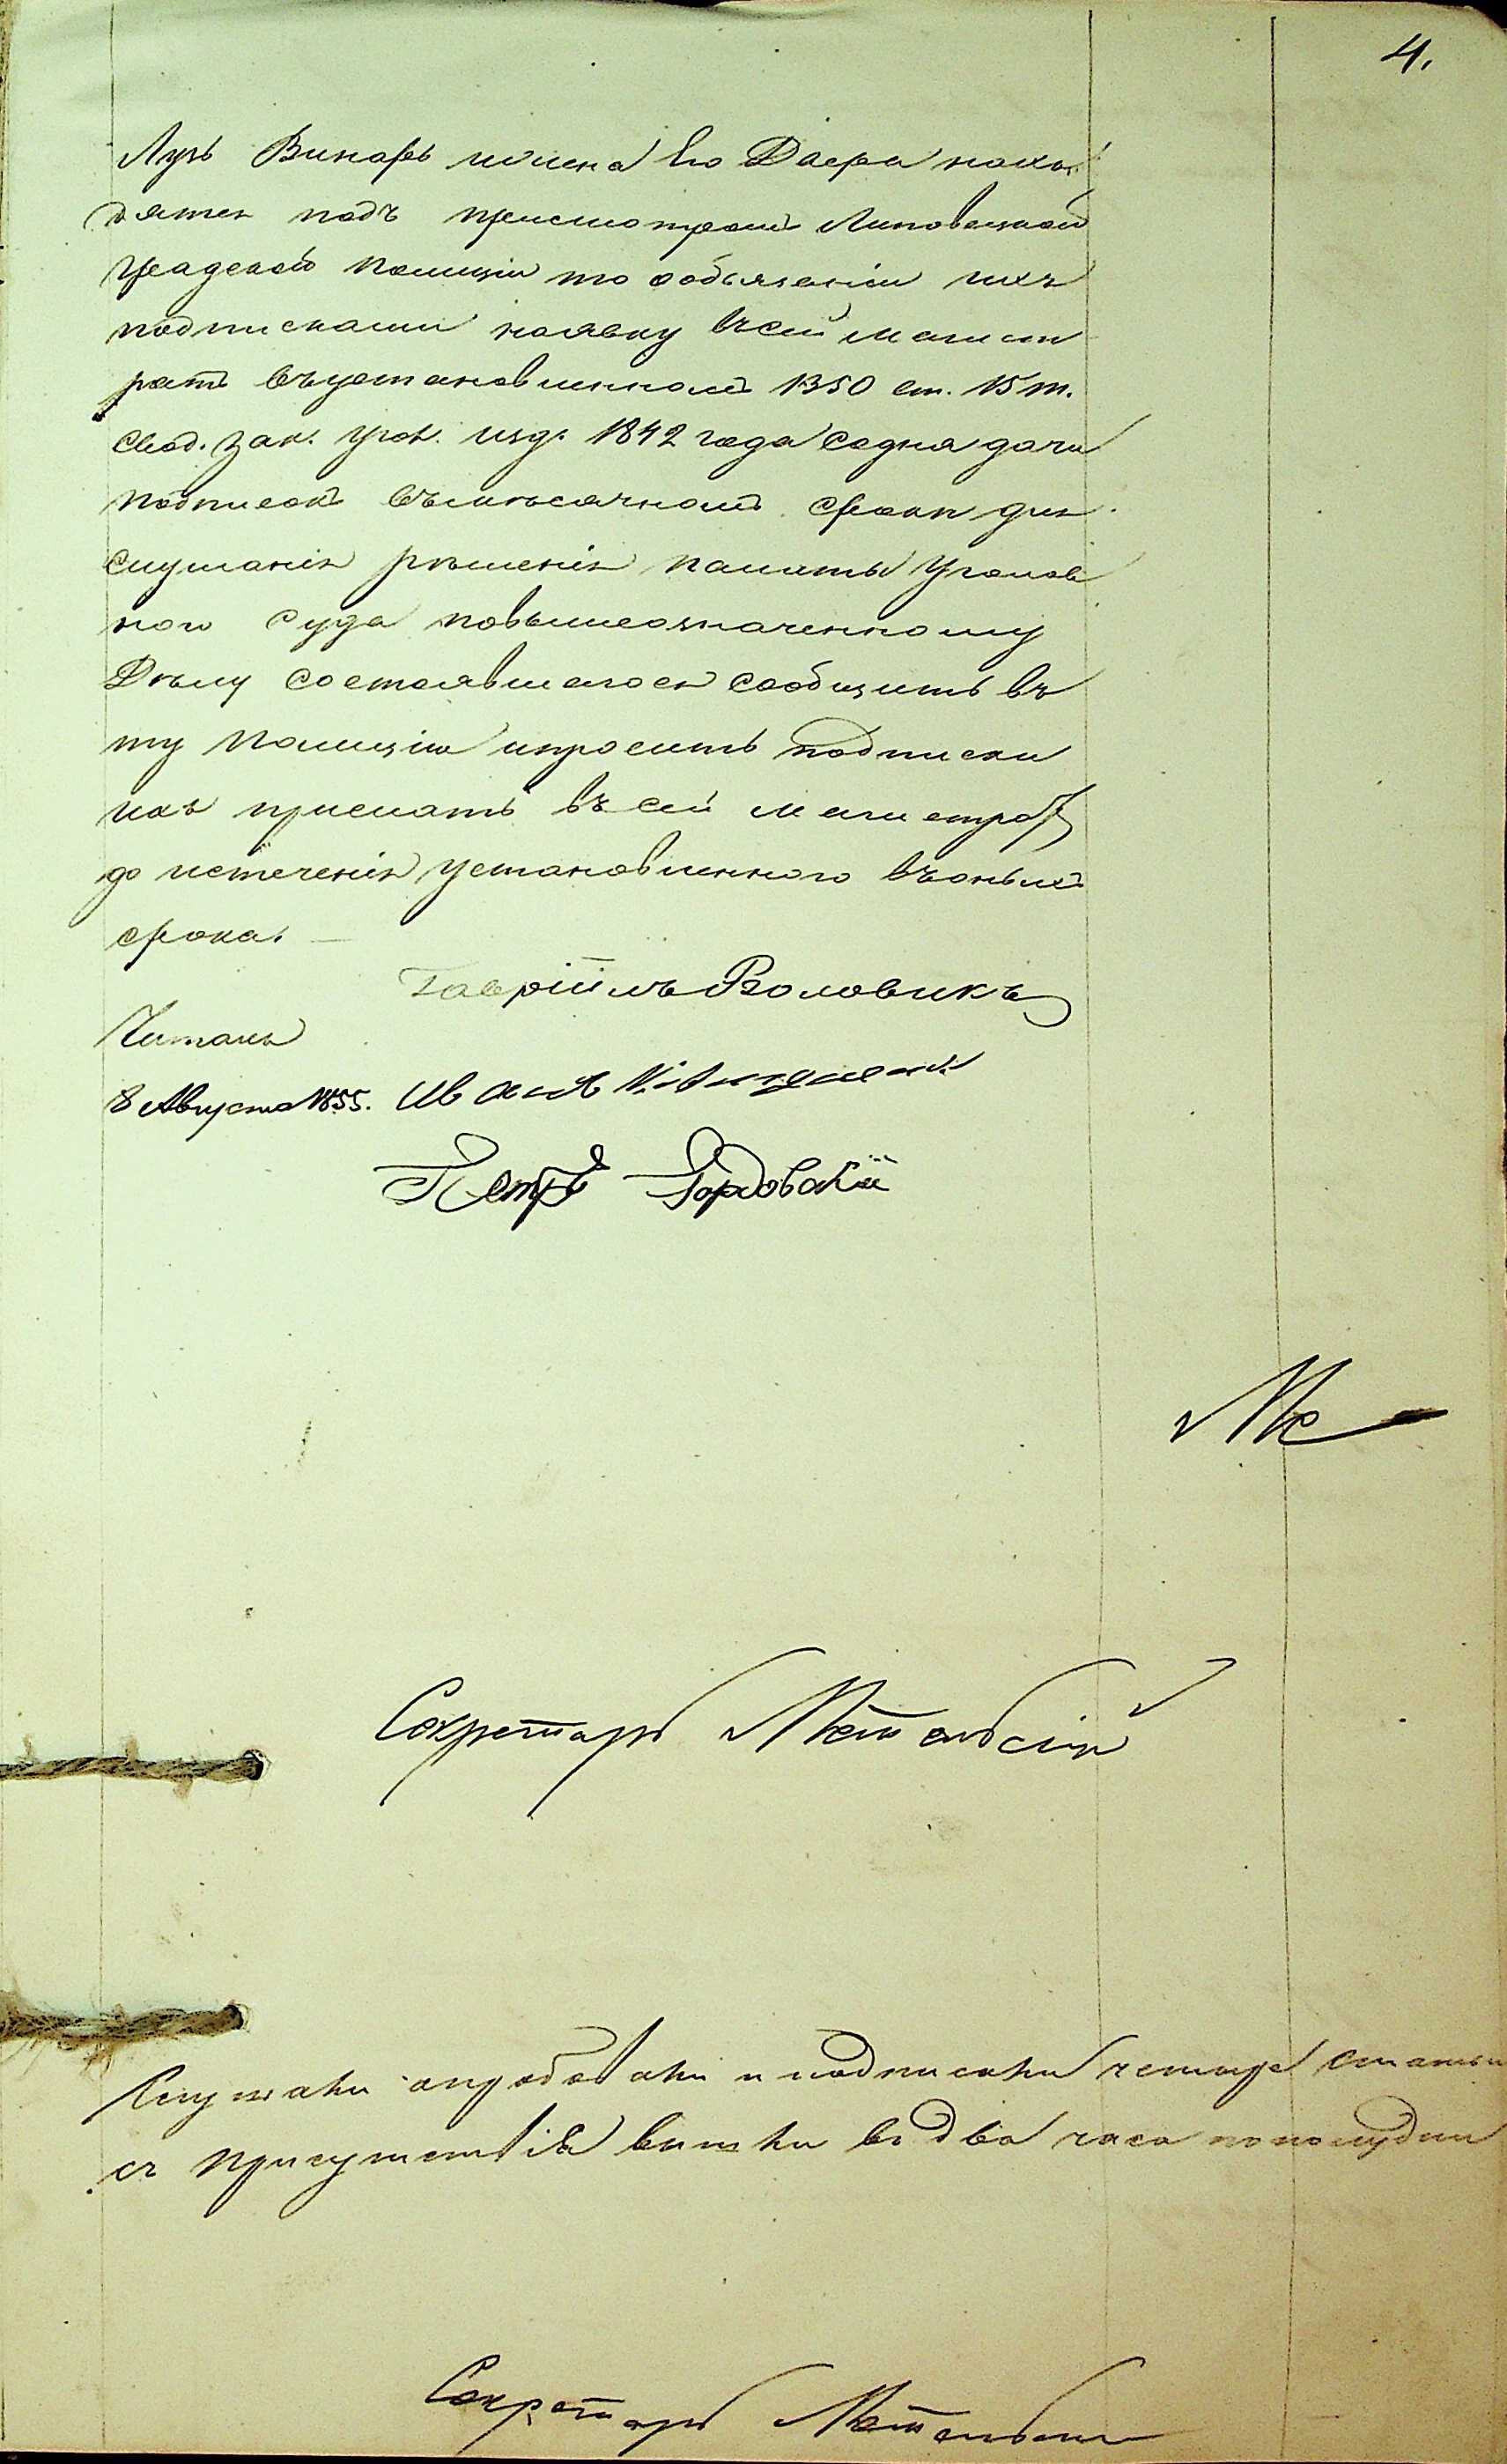 4.
Лузь Винарь и жена его Двера нахо-
дятся подъ присмотромъ Липовецкой
градской полиціи то обязаніи ихъ
подписками наявку въ сей магист
ратъ въустановленномъ 1350 ст. 15 т.
свод. зак. угол. изд. 1842 года содня дачи
подписокъ вмѣсячномъ срокѣ для
слушанія рѣшенія палаты уголов
ного суда повышеозначенному
Дѣлу состоявшагося сообщить въ
ту полицію ипросить подписки
ихъ прислать въ сей магистратъ
до истеченія установленного въоныхъ
срока.
Гавріилъ Воловикъ
Читалъ
8 Августа 1855. Иванъ
Петръ
Секретарь
Слушаны апробованы и подписаны четыре статьи
съ присутствія вышли въ два часа пополудни
Секретарь